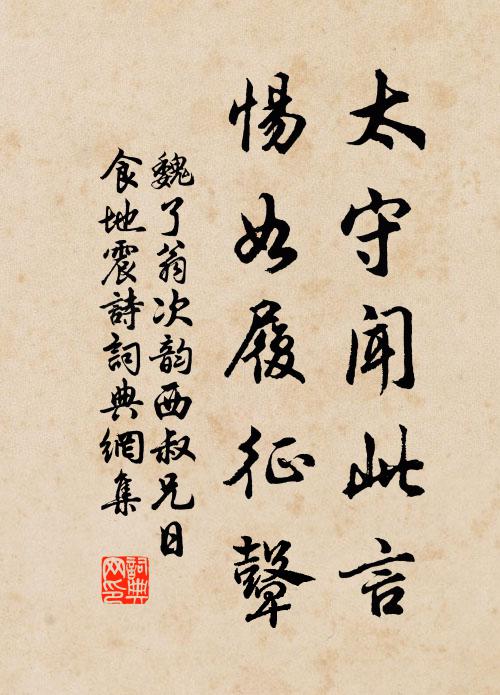 太守闻此言
惕如履征聲
魏了翁次韵西叔兄日
食地震詩詞典網集
詞典网印